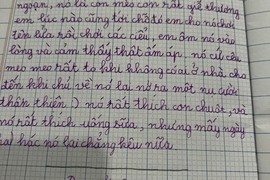 ngoạn, nó là con mèo con rất dễ thương
em lúc nào cũng tới chỗ tô em cho nó chơi
tên lửa rồi chơi các kiểu, em ôm nó vào
lòng và cảm thấy thật ấm áp nó cứ kêu
meo meo rất to khi không có ai ở nhà cho
đến khi chủ về nó lại nở ra một nụ cười
thân thiện :) nó rất thích con chuột, và
nó rất thích uống sữa, nhưng mấy ngày
hác nó lại chẳng kêu nữa